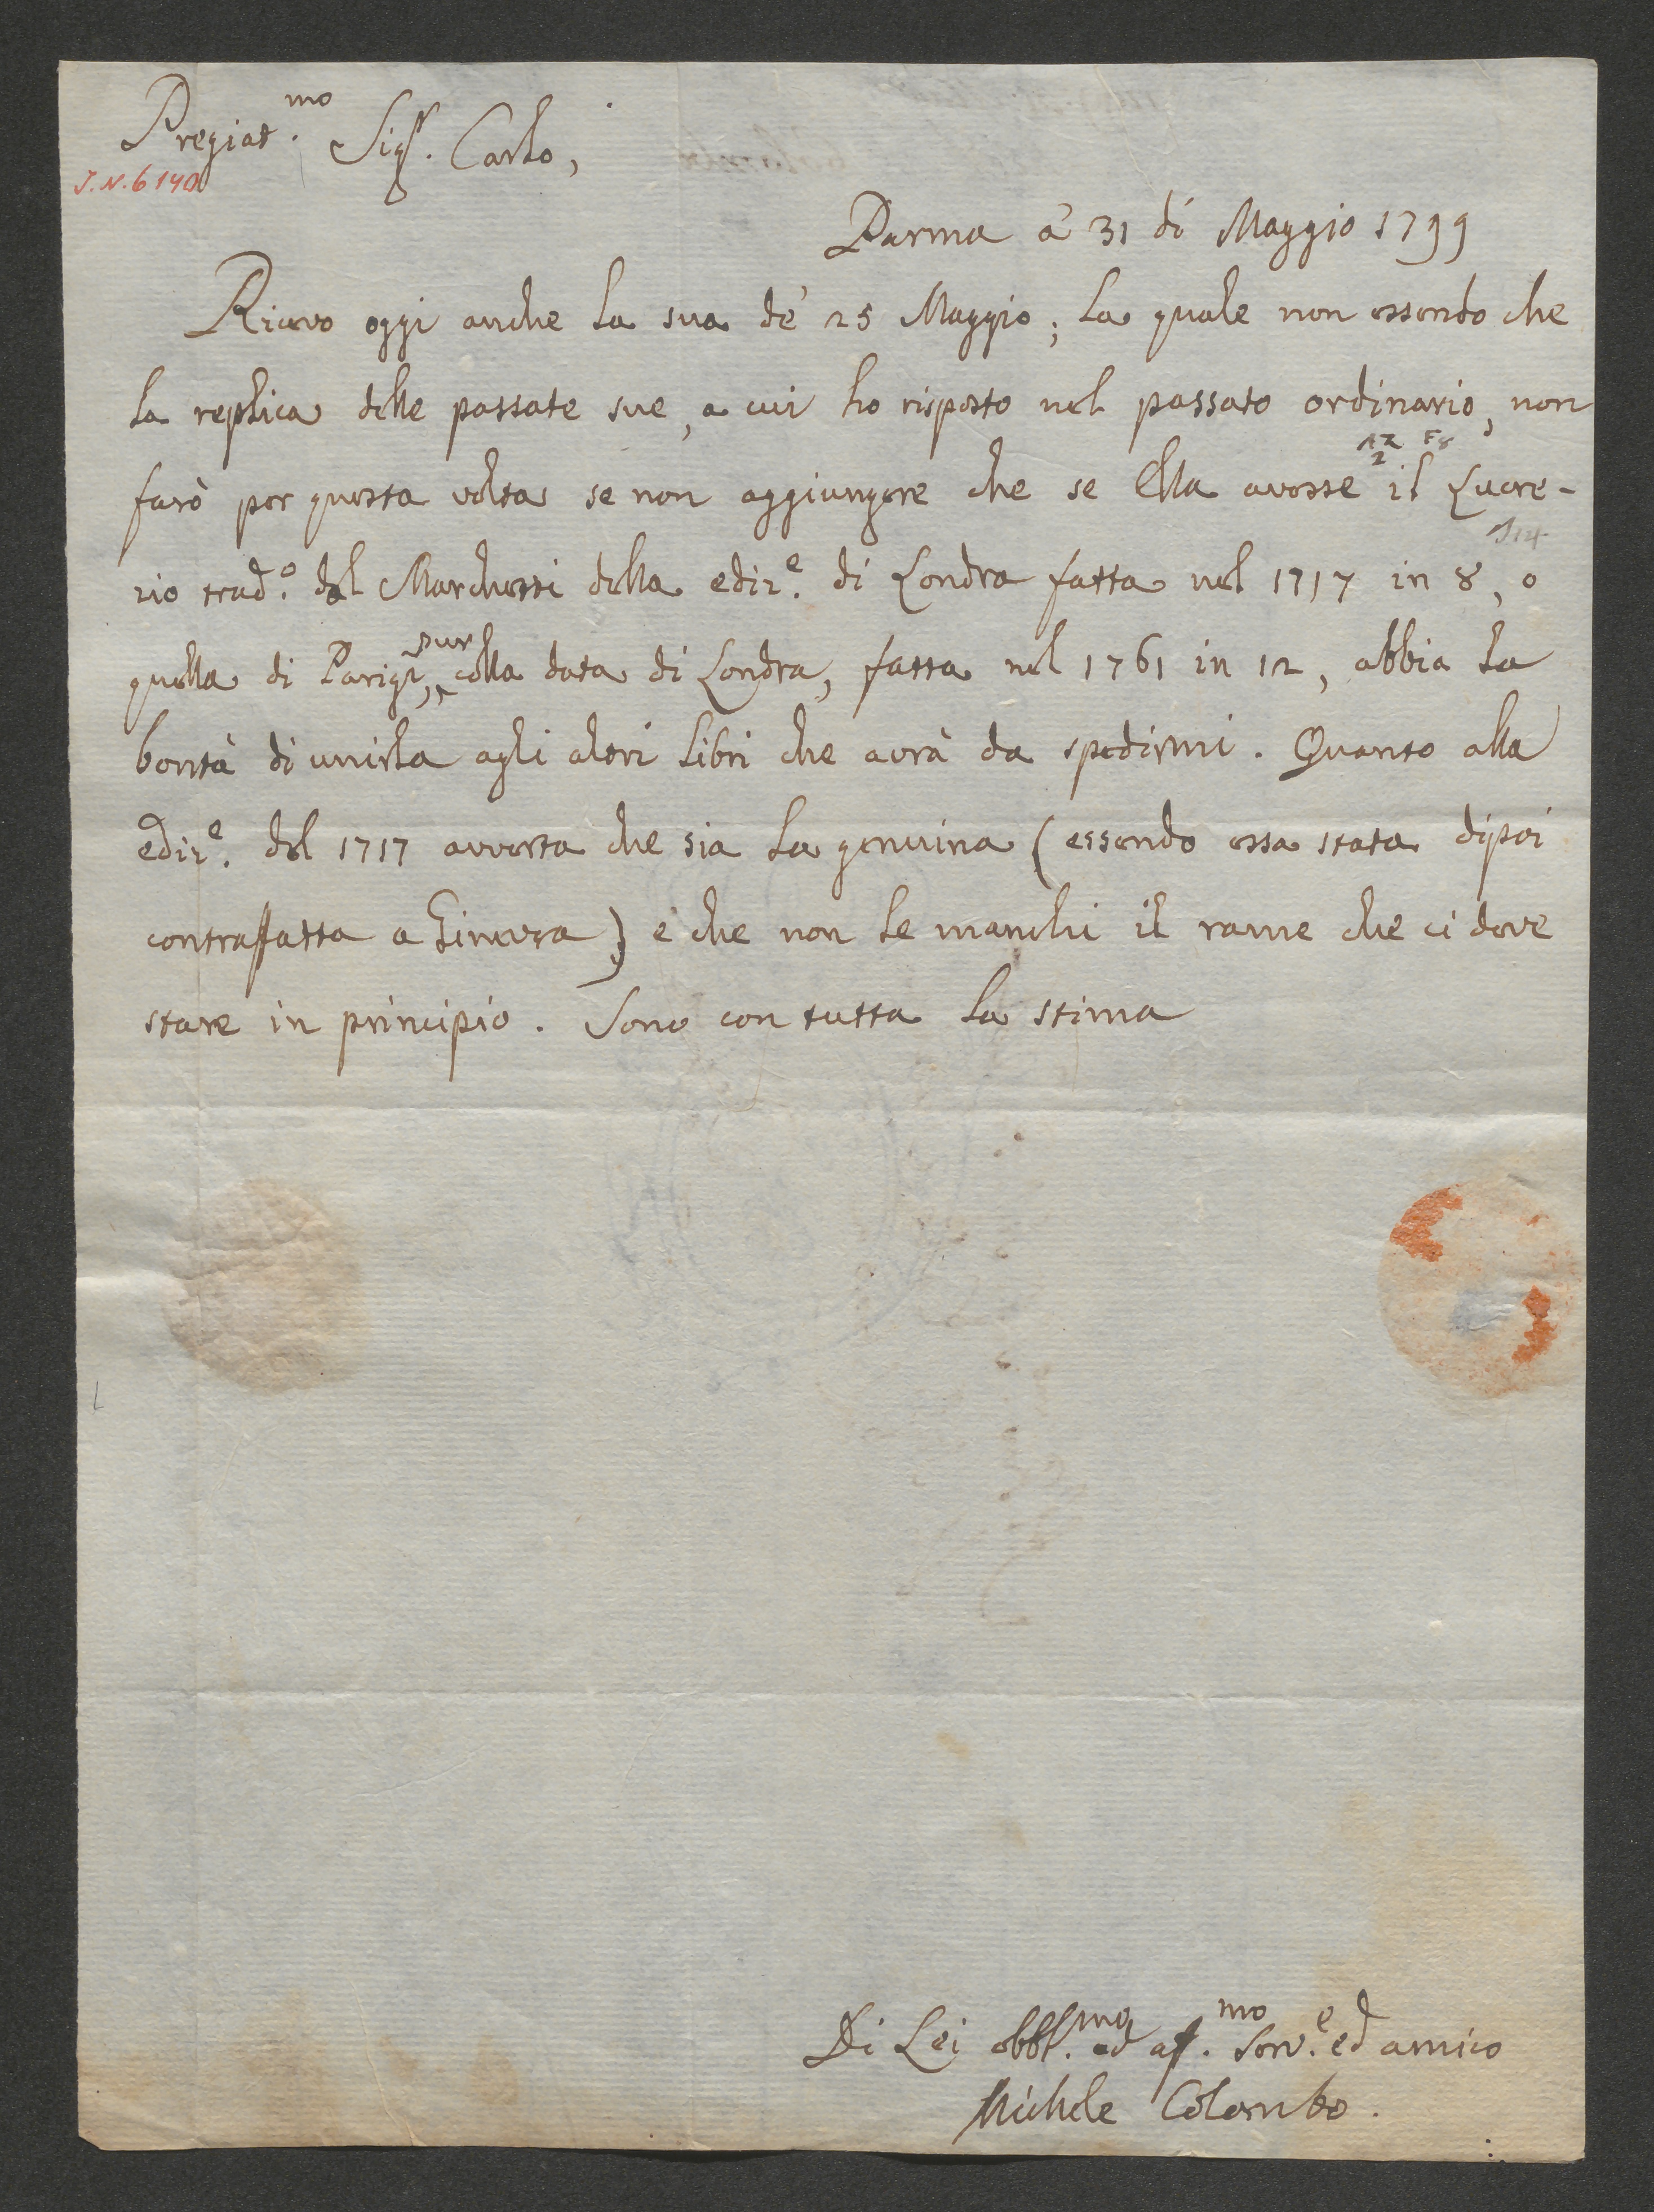 Pregiat.mo Sigr. Carlo,
J.N. 6140
Parma a' 31 di Maggio 1799
Ricevo oggi anche la sua de' 25 Maggio; la quale non essendo che
la replica delle passate sue, a cui ho risposto nel passato ordinario, non
farò per questa volta se non aggiungere che se Ella avesse il Lucre-
zio trad.o dal Marchetti della ediz.e di Londra fatta nel 1717 in 8, o
quella di Parigi, pur colla data di Londra, fatta nel 1761 in 12, abbia la
bontà di unirla agli altri libri che avrà da spedirmi. Quanto alla
ediz.e del 1717 avverta che sia la genuina (essendo essa stata dipoi
contraffatta a Ginevra) e che non le manchi il rame che ci deve
stare in principio. Sono con tutta la stima
Di Lei obbl.mo ed af.mo Serv.e ed amico
Michele Colombo.